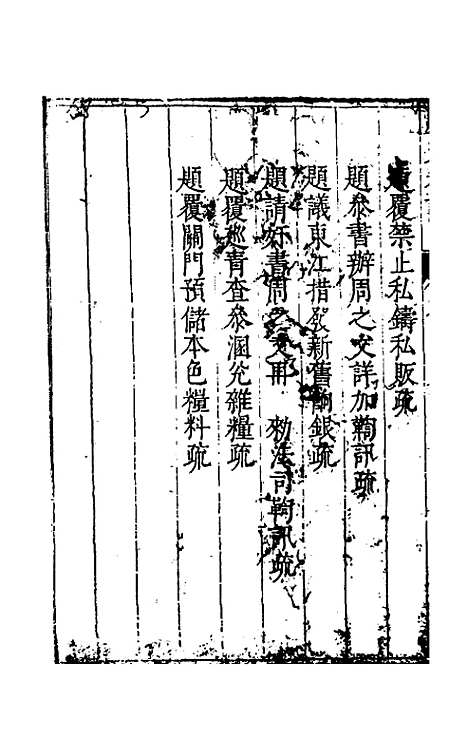 題覆禁止私鑄私販疏
題參書辦周之文詳加鞫訊疏
題議東江措發新舊餉銀疏
題請奸書周之文冊 勑法司鞫訊疏
題覆巡青查參溷兊雜糧疏
題覆關門預儲本色糧料疏